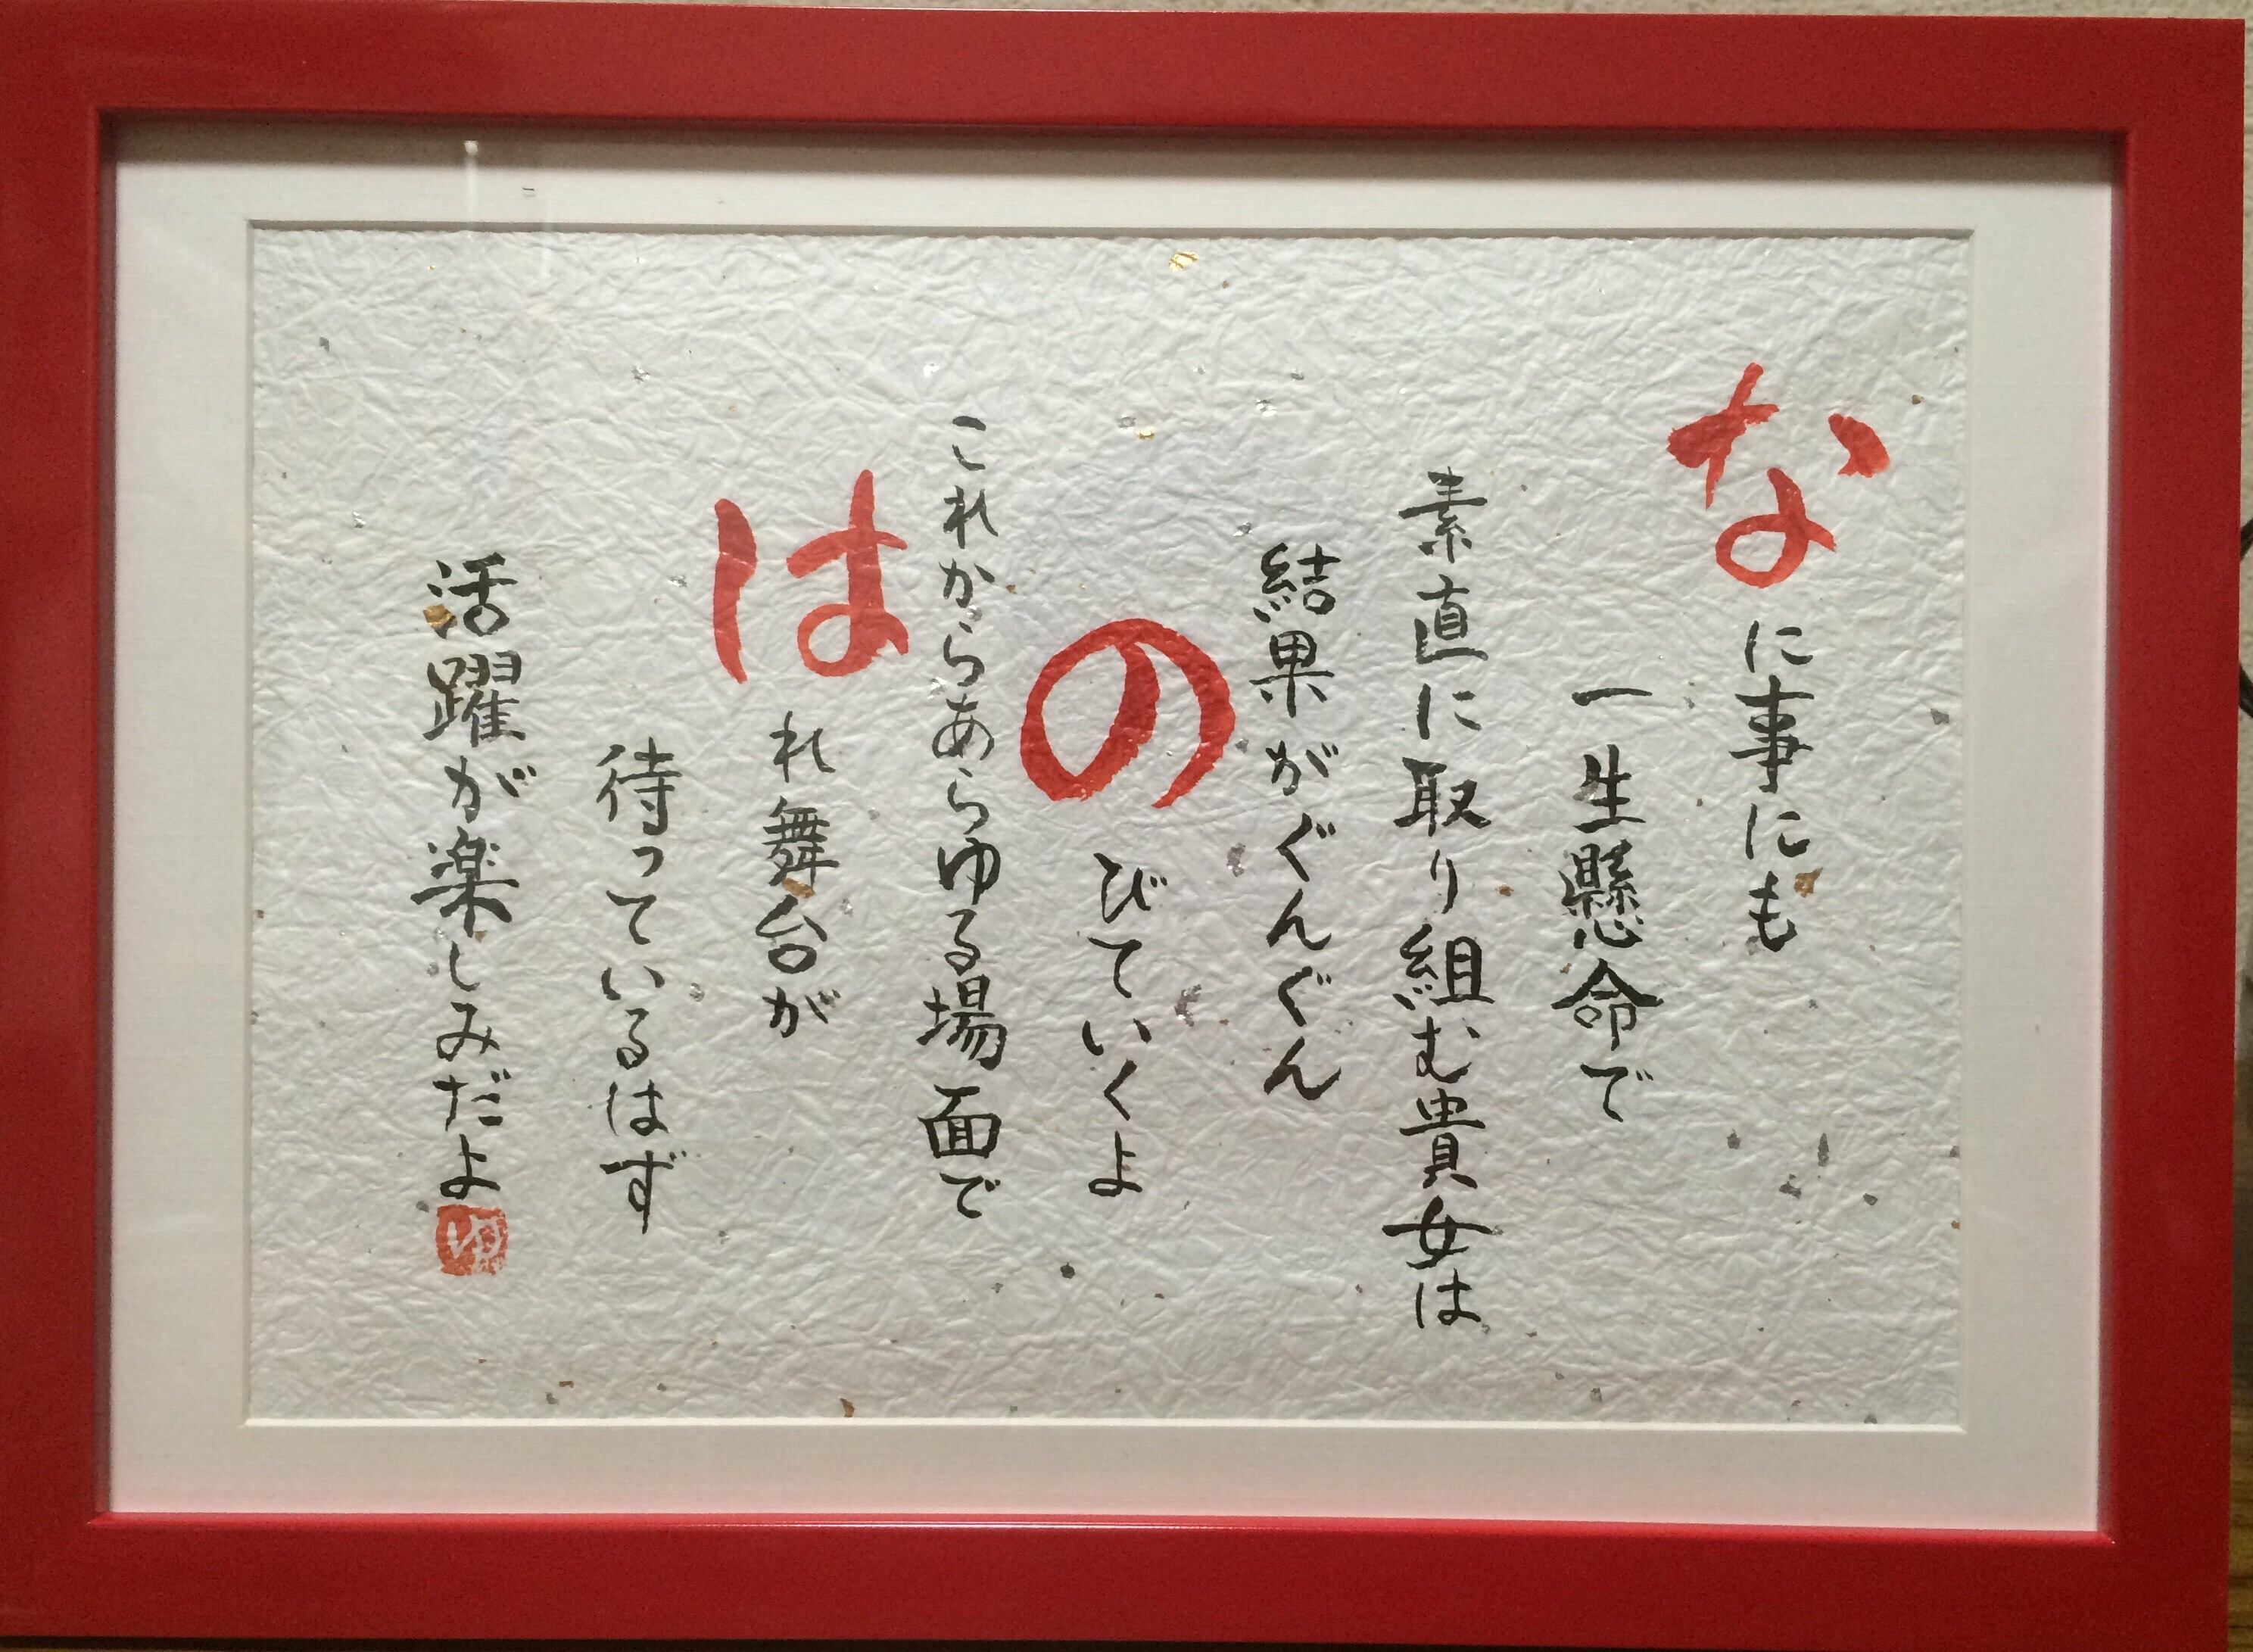 なに事にも
一生懸命で
素直に取り組む貴女は
結果がぐんぐん
のびていくよ
これからあらゆる場面で
はれ舞台が
待っているはず
活躍が楽しみだよ
ゆ